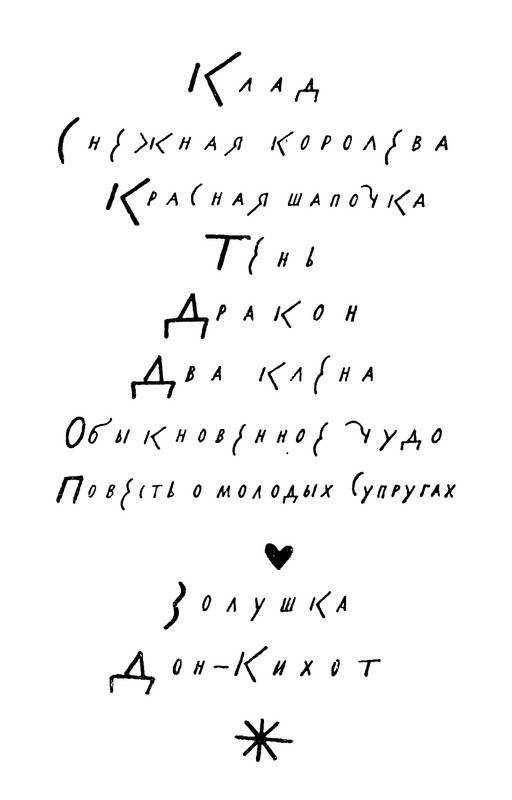 Клад
Снежная королева
Красная шапочка
Тень
Дракон
Два клена
Обыкновенное чудо
Повесть о молодых Супругах
Золушка
Дон-Кихот